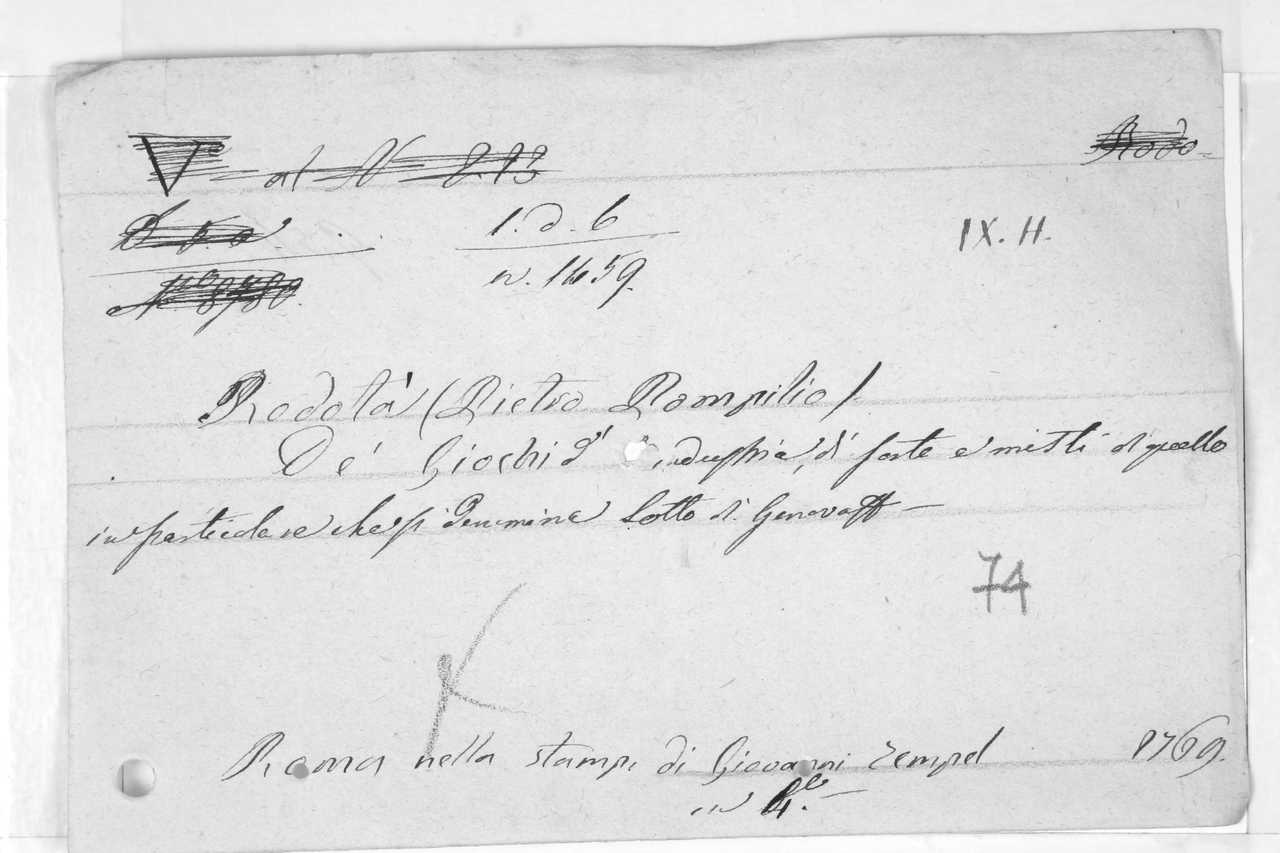 Vº al N 2.13
Rodo
1. d. 6
IX. H.
n. 1459.
Nº 8780.
Rodotà (Pietro Pompilio)
De' Giochi d' industria, di sorte e misti di quello
in particolare che si denomina Lotto di Genova
74
K
Roma nella stamp. di Giovanni Zempel 1769.
in 4.º